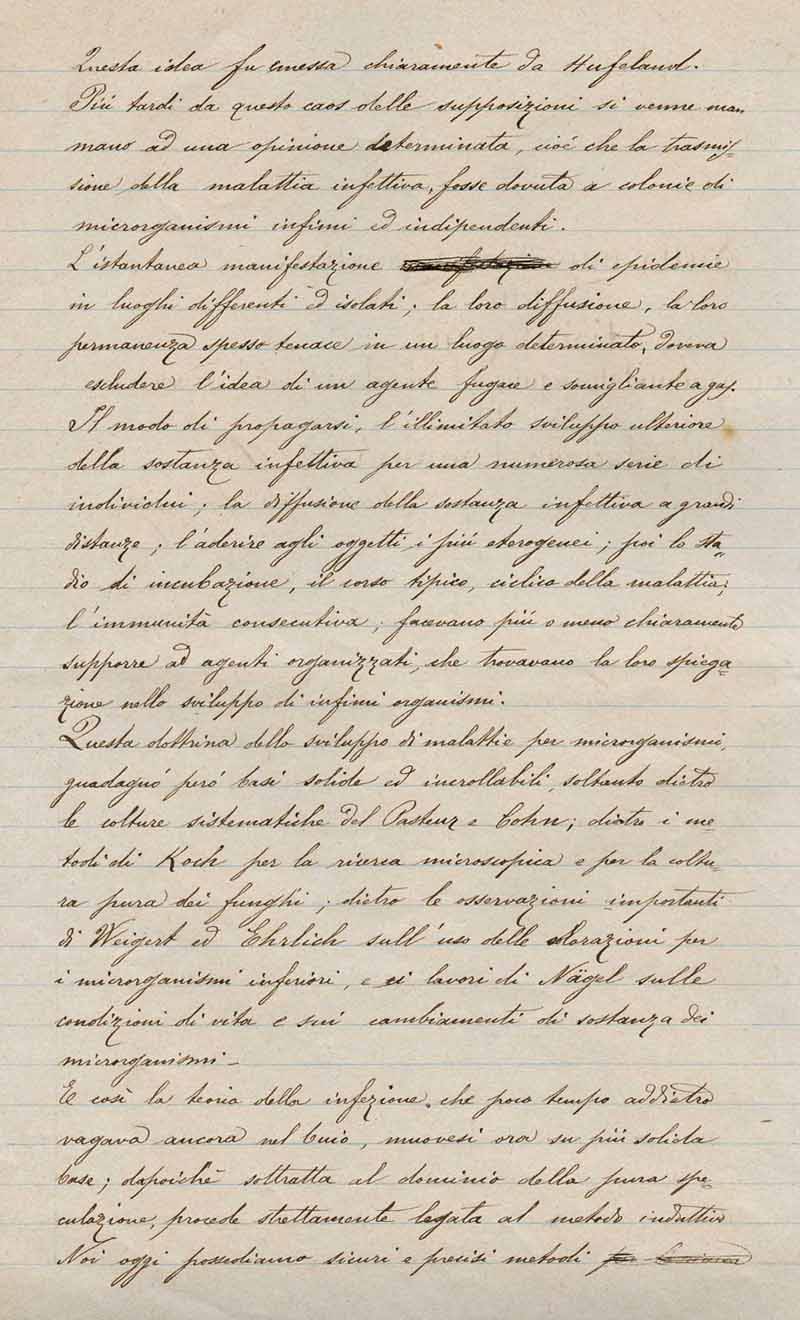 Questa idea fu emessa chiaramente da Hufeland.
Piú tardi da questo caos delle supposizioni si venne man
mano ad una opinione determinata, cioé che la trasmis-
sione della malattia infettiva, fosse dovuta a colonie di
microrganismi infimi ed indipendenti.
L'istantanea manifestazione di epidemie
in luoghi differenti ed isolati; la loro diffusione, la loro
permanenza spesso tenace in un luogo determinato, doveva
escludere l'idea di un agente fugace e somigliante a gas.
Il modo di propagarsi, l'illimitato sviluppo ulteriore
della sostanza infettiva per una numerosa serie di
individui; la diffusione della sostanza infettiva a grandi
distanze; l'aderire agli oggetti i piú eterogenei; poi lo sta-
dio di incubazione, il corso tipico, ciclico della malattia;
l'immunità consecutiva; facevano piú o meno chiaramente
supporre ad agenti organizzati, che trovavano la loro spiega-
zione nello sviluppo di infimi organismi.
Questa dottrina dello sviluppo di malattie per microrganismi,
guadagnó peró basi solide ed incrollabili, soltanto dietro
le colture sistematiche del Pasteur e Cohn; dietro i me-
todi di Koch per la ricerca microscopica e per la coltu-
ra pura dei funghi; dietro le osservazioni importanti
di Weigert ed Ehrlich sull'uso delle colorazioni per
i microrganismi inferiori, e ai lavori di Nägel sulle
condizioni di vita e sui cambiamenti di sostanza dei
microrganismi_
E così la teoria della infezione, che poco tempo addietro
vagava ancora nel buio, muovesi ora su piú solida
base; dapoiché sottratta al dominio della pura spe-
culazione, procede strettamente legata al metodo induttivo
Noi oggi possediamo sicuri e precisi metodi